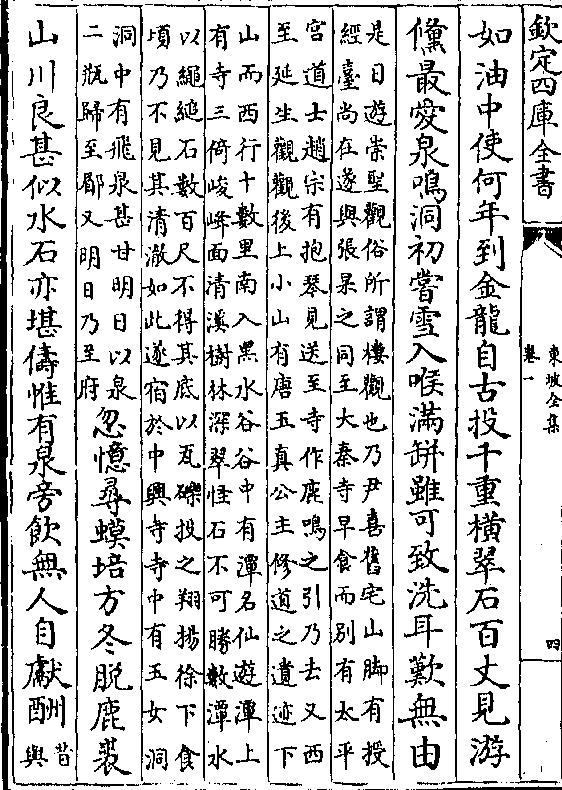 欽定四庫全書
東坡全集
卷一
四
如油中使何年到金龍自古投千重橫翠石百丈見游
儵最愛泉鳴洞初嘗雪入喉滿缾雖可致洗耳歎無由
是日遊崇聖觀俗所謂樓觀也乃尹喜舊宅山脚有授
經臺尚在遂與張杲之同至大秦寺早食而別有太平
宫道士趙宗有抱琴見送至寺作鹿鳴之引乃去又西
至延生觀觀後上小山有唐玉真公主修道之遺迹下
山而西行十數里南入黑水谷谷中有潭名仙遊潭上
有寺三倚峻峰面清溪樹林深翠怪石不可勝數潭水
以繩縋石數百尺不得其底以瓦礫投之翔揚徐下食
頃乃不見其清澈如此遂宿於中興寺寺中有玉女洞
洞中有飛泉甚甘明日以泉
二瓶歸至郿又明日乃至府
忽憶尋蟆培方冬脫鹿裘
山川良甚似水石亦堪儔惟有泉旁飲無人自獻酬
昔
與